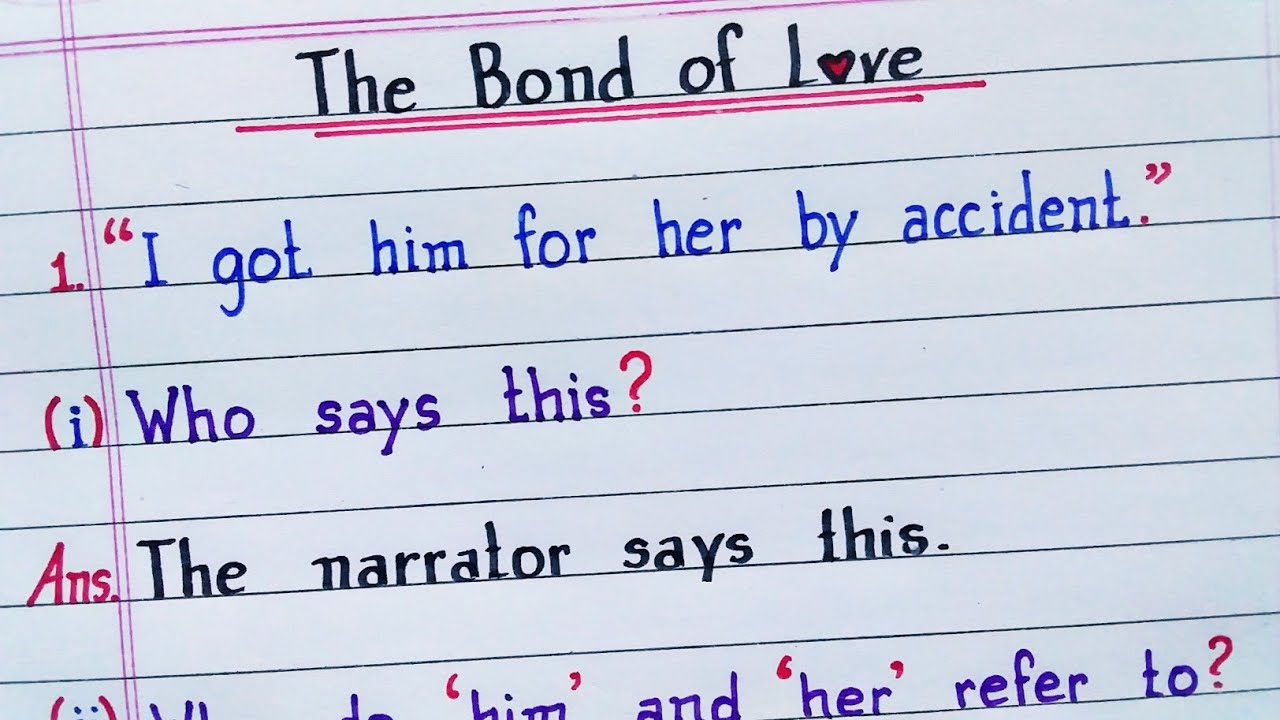 The Bond of Love
1. "I got him for her by accident."
(i) Who says this?
Ans. The narrator says this.
(ii) do 'him' and 'her' refer to?